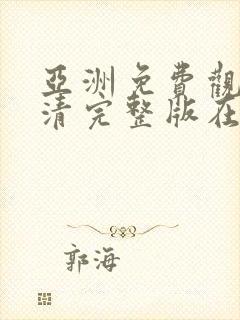 亞洲免費觀
清完整版在
郭海